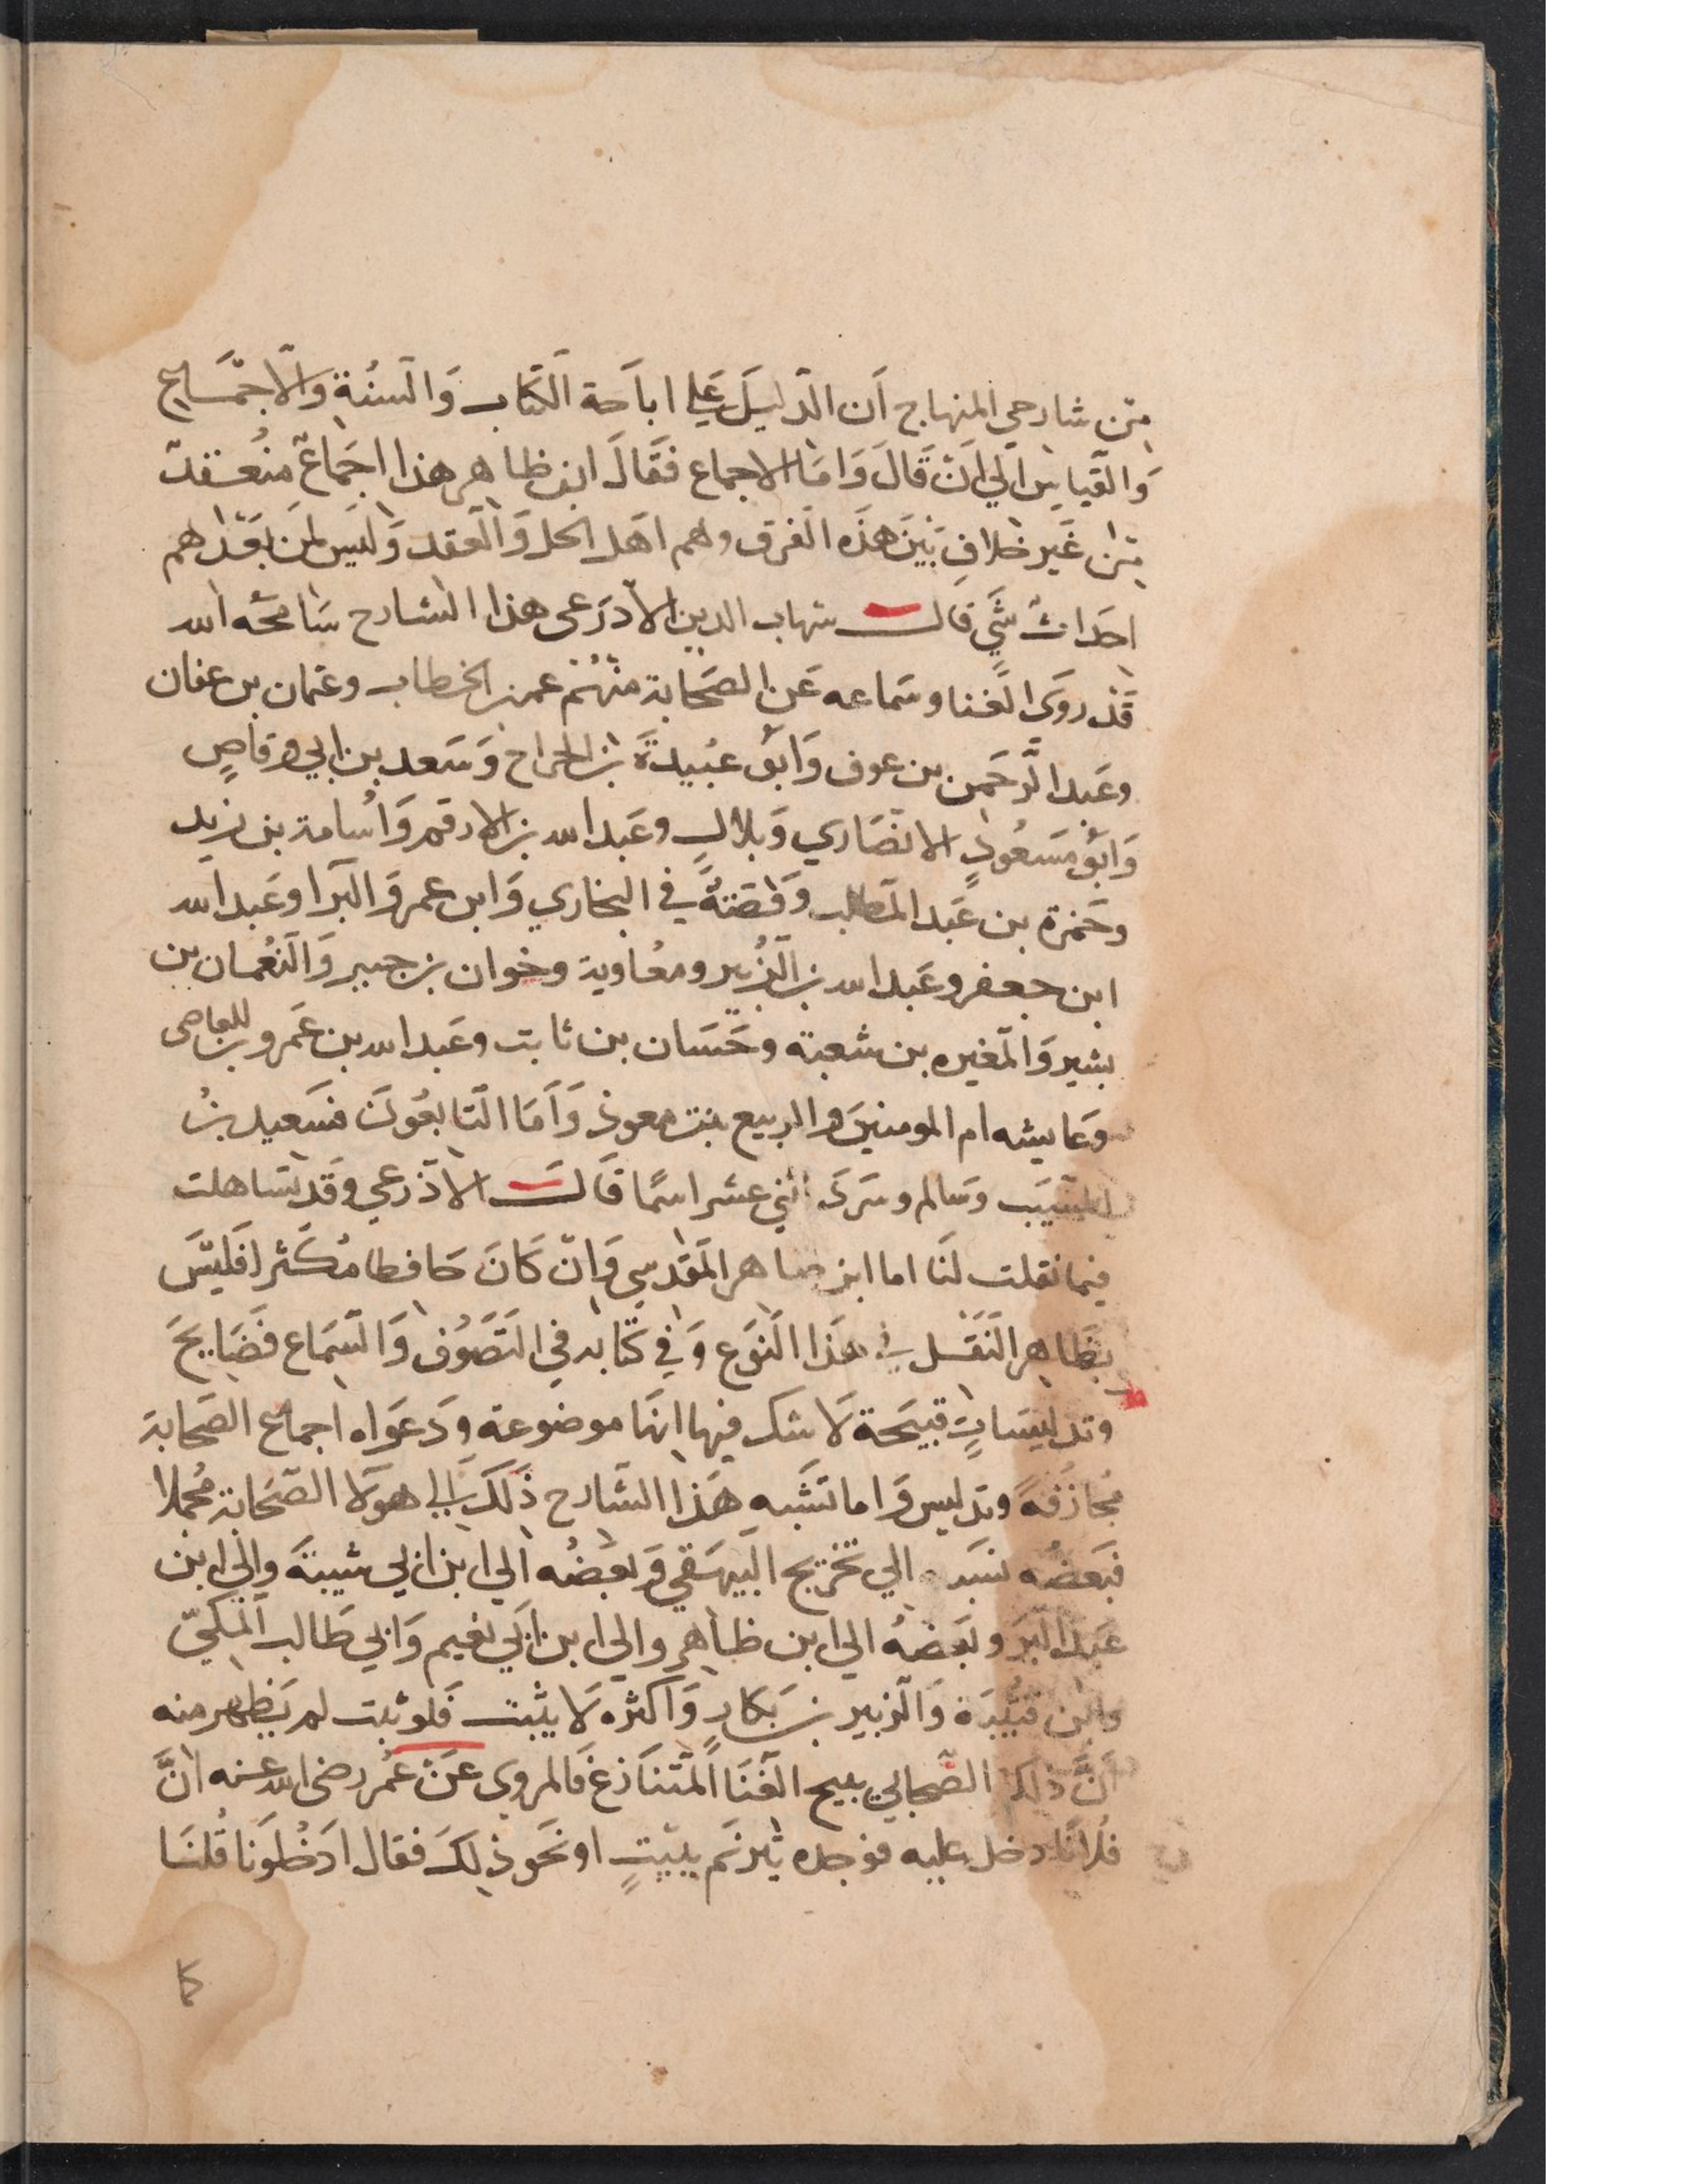 من شارحي المنهاج أن الدليل علي اباحة الكتاب والسنة والاجماع
والقياس الي ان قال واما الاجماع فقال ابن ظاهر هذا اجماع منعقد
من غير خلاف بين هذه الفرق وهم اهل الحل والعقد وليس لمن بعدهم
احداث شي قال شهاب الدين الاذرعى هذا الشارح سامحه الله
قد روي الغنا وسماعه عن الصحابة منهم عمر بن الخطاب وعثمان بن عفان
وعبد الرحمن بن عوف وابو عبيدة بن الجراح وسعد بن ابي وقاص
وابو مسعود الانصاري وبلال وعبد الله بن الارقم واسامة بن زيد
وحمزة بن عبد المطلب وقصته في البخاري وابن عمر والبرا وعبد الله
ابن جعفر وعبد الله بن الزبير ومعاوية وخوان بن جبير والنعمان بن
بشير والمغيره بن شعبة وحسان بن ثابت وعبد الله بن عمرو بن العاصى
وعايشه ام المومنين والربيع بنت معوذ واما التابعون فسعيد بن
المسيب وسالم وسرد اثني عشر اسما قال الاذرعي وقد تساهلت
فيما نقلت لنا اما ابن طاهر المقدسي وان كان حافظا مكثرا فليس
بظاهر النقل في هذا النوع وفي كتابه في التصوف والسماع فضايح
وتدليسات قبيحة لا شك فيها انها موضوعة ودعواه اجماع الصحابة
مجازفة وتدليس واما نسبه هذا الشارح ذلك الي هولا الصحابة مجملا
فبعضه نسبه الي تخريج البيهقي وبعضه الي ابن ابي شيبة والي ابن
عبد البر وبعضه الي ابن ظاهر والي ابن ابي نعيم وابي طالب المكي
وابن قتيبة والزبير بن بكار واكثره لا يثبت فلو ثبت لم يظهر منه
ان ذلك الصحابي يبيح الغنا المتنازع فالمروي عن عمر رضى الله عنه ان
فلانا دخل عليه فوجده يترنم ببيت او نحو ذلك فقال ادخلونا قلنا